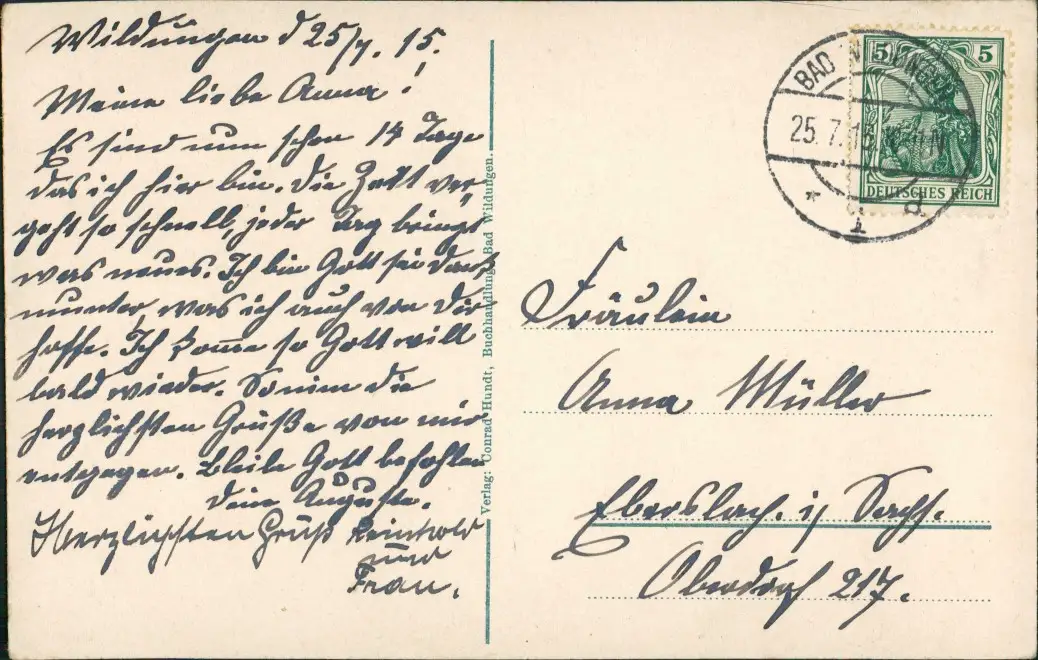 Wildungen d 25/7. 15.
Meine liebe Anna!
Es sind nun schon 14 Tage
das ich hier bin. Die Zeit ver-
geht so schnell, jeder Tag bringt
was neues. Ich bin Gott sei dank
munter, was ich auch von Dir
hoffe. Ich komme so Gott will
bald wieder. So nim die
herzlichsten Grüße von mir
entgegen. Bleibe Gott befohlen
Deine Auguste.
Herzlichsten Gruß Reinhold
und
Frau.
Verlag: Conrad Hundt, Buchhandlung, Bad Wildungen.
BAD WILDUNGEN
25. 7. 15
* 1 d.
5 5
DEUTSCHES REICH
Fräulein
Anna Müller
Ebersbach. i/ Sachs.
Oberdorf 217.